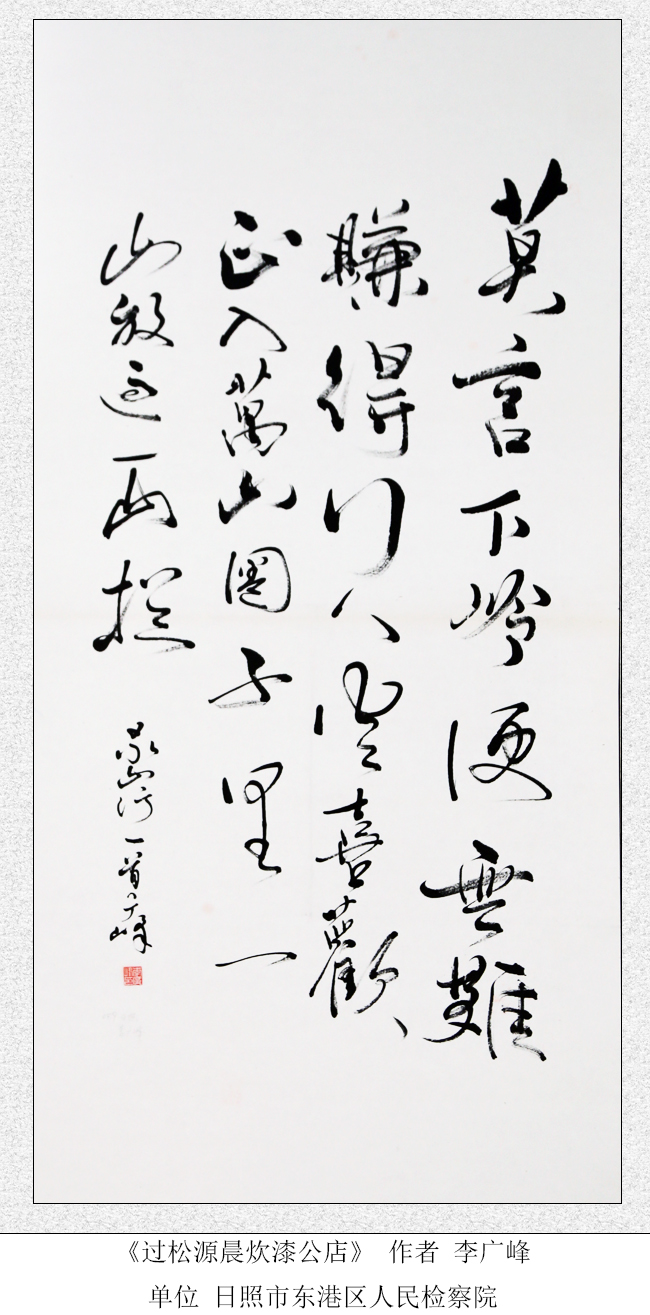 莫言下岭便無難
賺得行人空喜歡
正入萬山圈子里一
山放過一山拦
一首广峰
《过松源晨炊漆公店》 作者 李广峰
单位 日照市东港区人民检察院